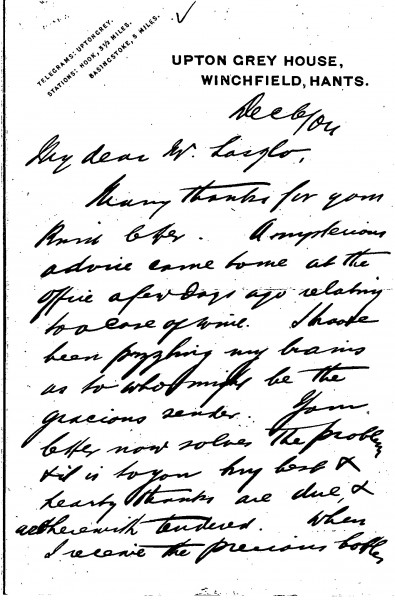 TELEGRAMS: UPTONGREY.
STATIONS: HOOK, 3½ MILES.
BASINGSTOKE, 5 MILES.
UPTON GREY HOUSE,
WINCHFIELD, HANTS.
Dec 6/04
My dear Mr. Laszlo,
Many thanks for your
kind letter. A mysterious
advice came to me at the
office a few days ago relating
to a case of wine. I have
been puzzling my brains
as to who might be the
gracious sender. Your
letter now solves the problem
& it is to you my best &
hearty thanks are due, &
are herewith tendered. When
I receive the precious bottles